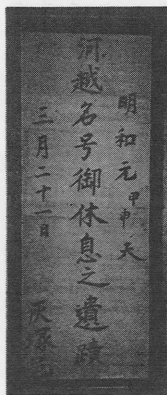 明和元甲申天
河越名号御休息之遺蹟
三月二十一日 灰塚